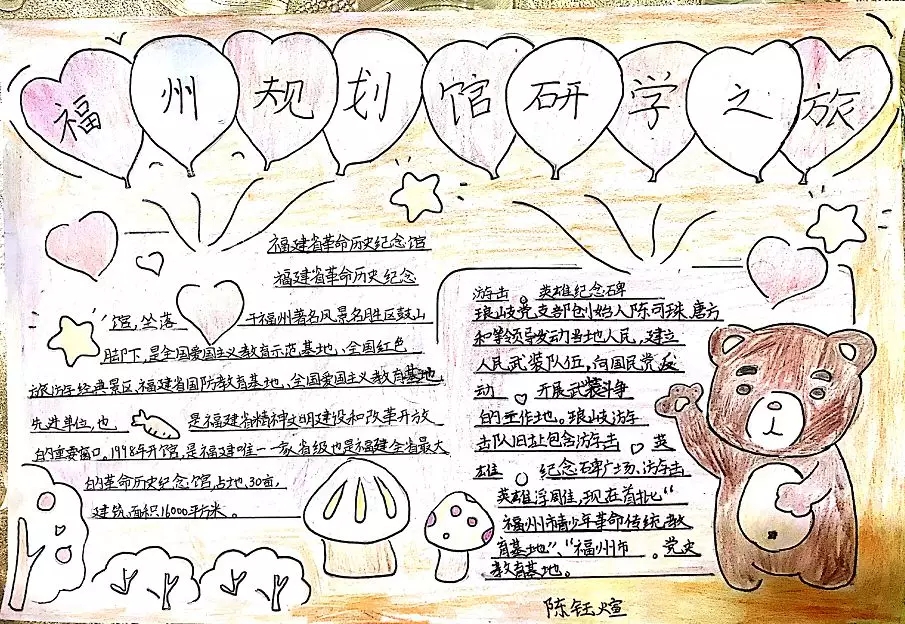 福州规划馆研学之旅
福建省革命历史纪念馆
福建省革命历史纪念
馆,坐落 于福州著名风景名胜区鼓山
脚下,是全国爱国主义教育示范基地、全国红色
旅游经典景区、福建省国防教育基地、全国爱国主义教育基地
先进单位,也 是福建省精神文明建设和改革开放
的重要窗口。1998年开馆,是福建唯一一家省级也是福建全省最大
的革命历史纪念馆,占地30亩,
建筑面积16000平方米。
游击 英雄纪念碑
琅岐党支部创始人陈可珠、唐方
和等领导发动当地人民,建立
人民武装队伍,向国民党发
动 开展武装斗争
的工作地。琅岐游
击队旧址包含游击 英
雄 纪念碑广场、游击
英雄浮雕,现在首批“
福州市青少年革命传统教
育基地”、“福州市 。党史
教育基地。
陈钰煊